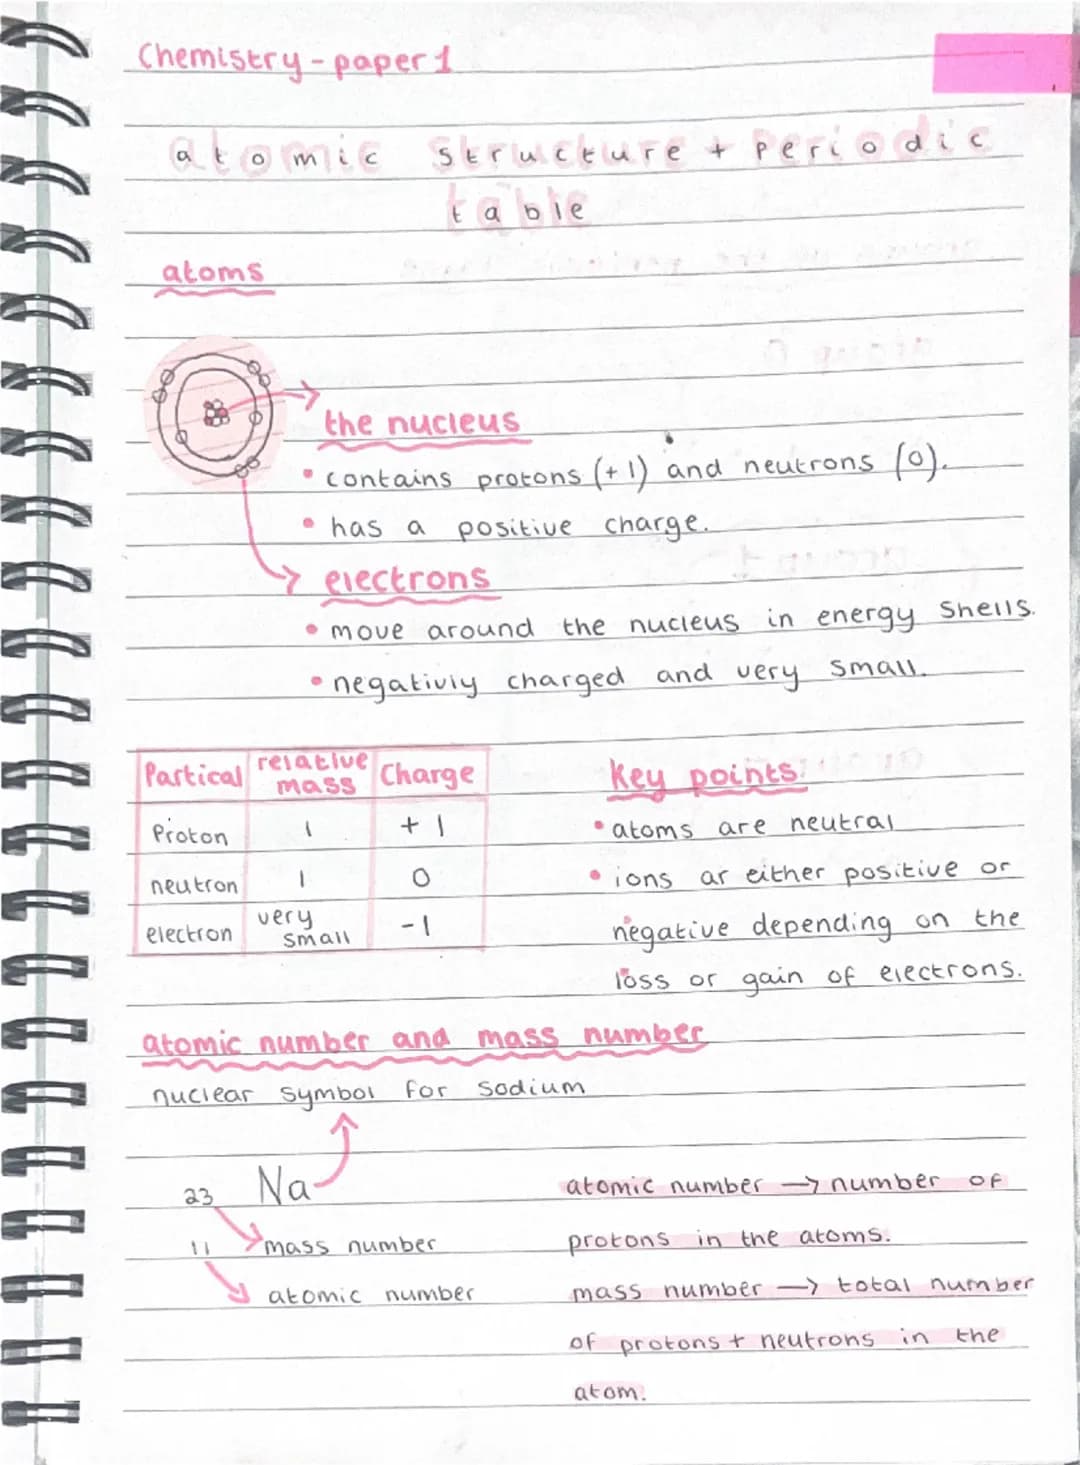 Chemistry - paper 1
atomic structure + periodic
table
atoms
the nucleus
• contains protons (+1) and neutrons (0).
• has a positive charge.
electrons
• move around the nucleus in energy shells.
• negativly charged and very small.
Partical relative mass Charge
Proton 1 +1
neutron 1 0
electron very small -1
Key points
• atoms are neutral
• ions ar either positive or
negative depending on the
loss or gain of electrons.
atomic number and mass number
nuclear symbol for sodium
23 Na
11 mass number
atomic number
atomic number → number of
protons in the atoms.
mass number → total number
of protons + neutrons in the
atom.